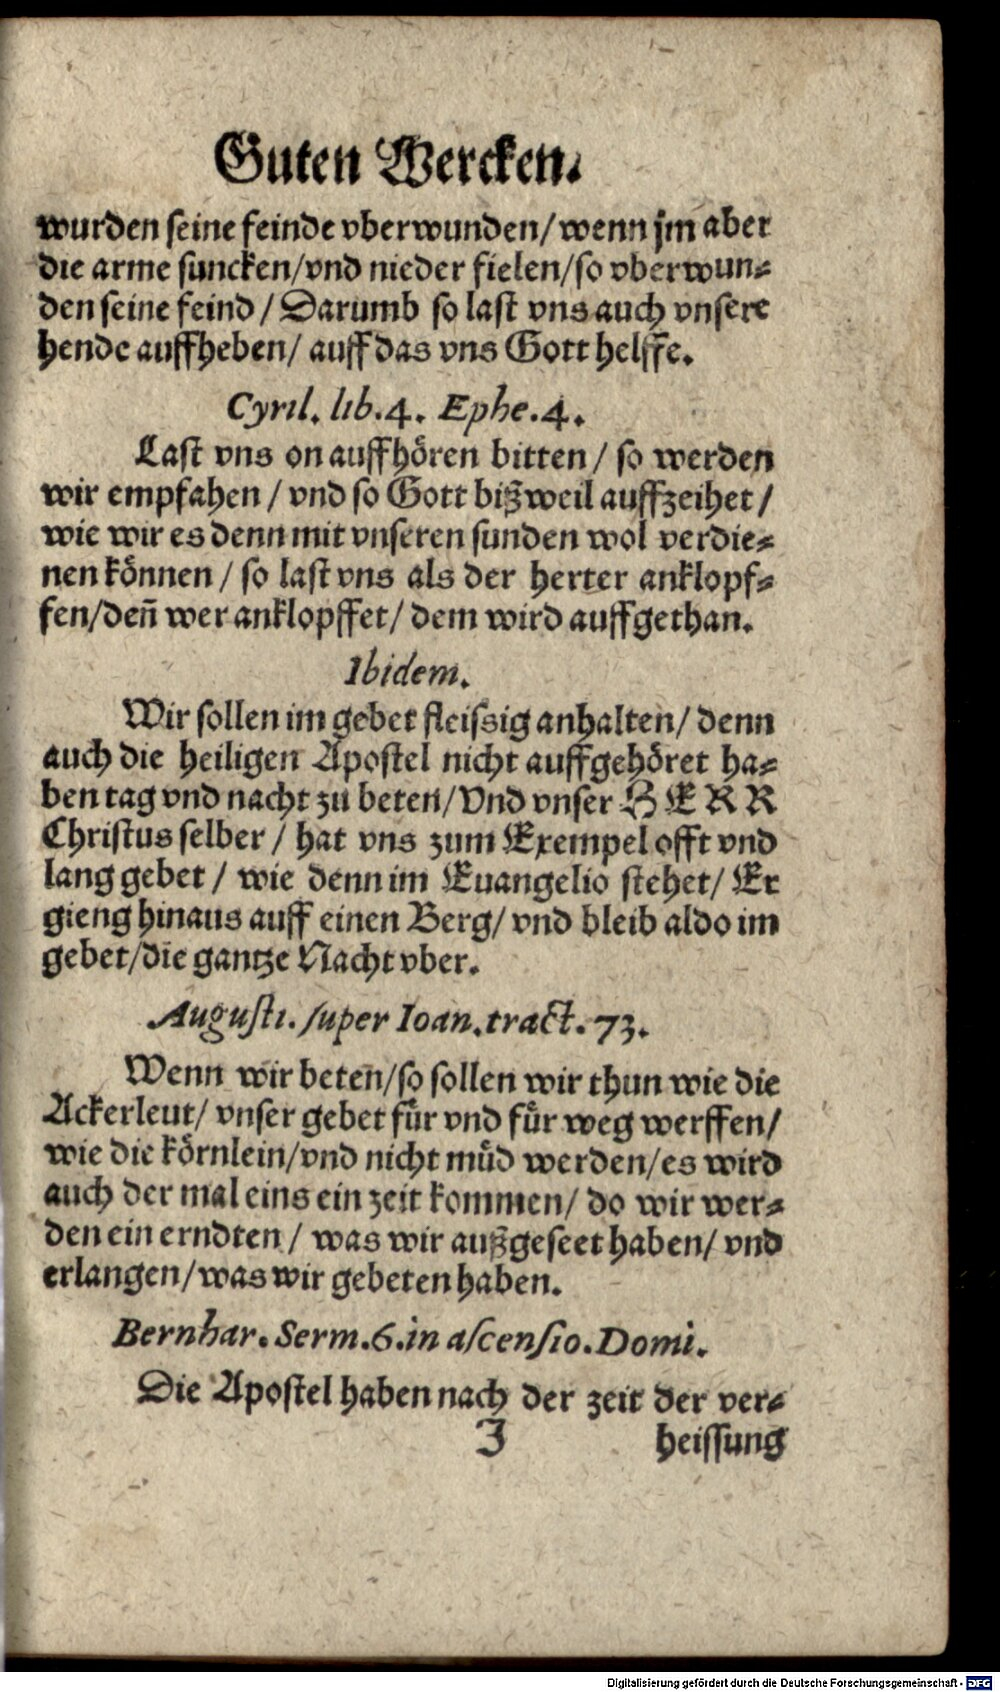 Guten Wercken.
wurden seine feinde vberwunden/ wenn jm aber
die arme suncken/ vnd nieder fielen/ so vberwun-
den seine feind / Darumb so last vns auch vnsere
hende auffheben/ auff das vns Gott helffe.
Cyril. lib.4. Ephe.4.
Last vns on auffhören bitten / so werden
wir empfahen / vnd so Gott bißweil auffzeihet /
wie wir es denn mit vnseren sunden wol verdie-
nen können / so last vns als der herter anklopf-
fen/ deñ wer anklopffet/ dem wird auffgethan.
Ibidem.
Wir sollen im gebet fleissig anhalten/ denn
auch die heiligen Apostel nicht auffgehöret ha-
ben tag vnd nacht zu beten/ Vnd vnser HERR
Christus selber / hat vns zum Exempel offt vnd
lang gebet / wie denn im Euangelio stehet/ Er
gieng hinaus auff einen Berg/ vnd bleib aldo im
gebet/ die gantze Nacht vber.
Augusti. super Ioan. tract. 73.
Wenn wir beten/ so sollen wir thun wie die
Ackerleut/ vnser gebet für vnd für weg werffen/
wie die körnlein/ vnd nicht müd werden/ es wird
auch der mal eins ein zeit kommen/ do wir wer-
den ein erndten / was wir außgeseet haben/ vnd
erlangen/ was wir gebeten haben.
Bernhar. Serm.6. in ascensio. Domi.
Die Apostel haben nach der zeit der ver-
J heissung
Digitalisierung gefördert durch die Deutsche Forschungsgemeinschaft - DFG